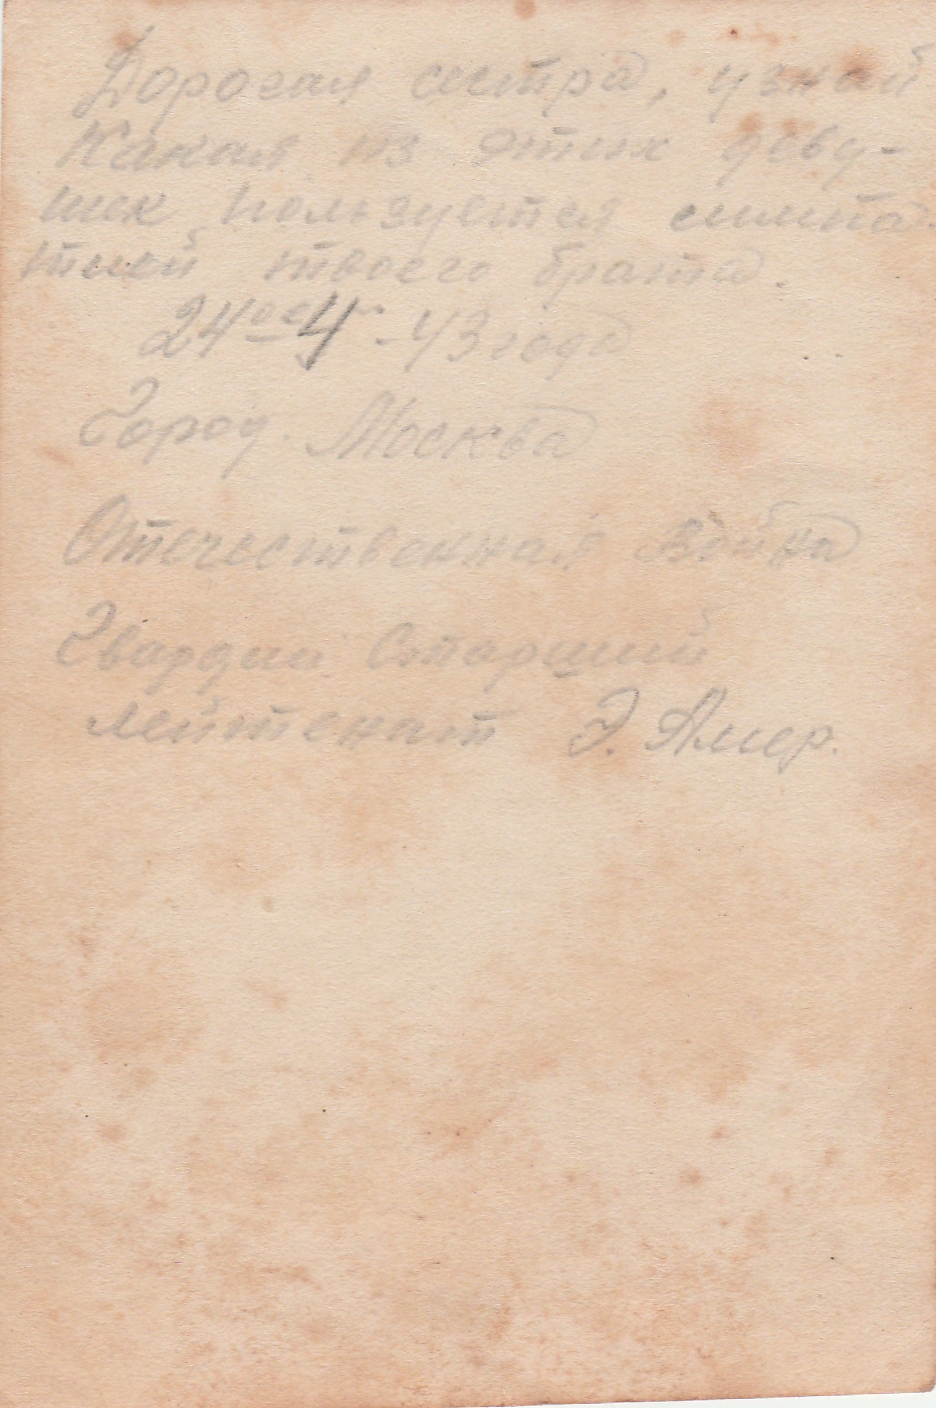 Дорогая сестра, узнай
Какая из этих деву-
шек пользуется симпа-
тией твоего брата.
24ое 4 - 43 года
Город. Москва
Отечественная Война
Гвардии Старший
лейтенат Э. Амер.